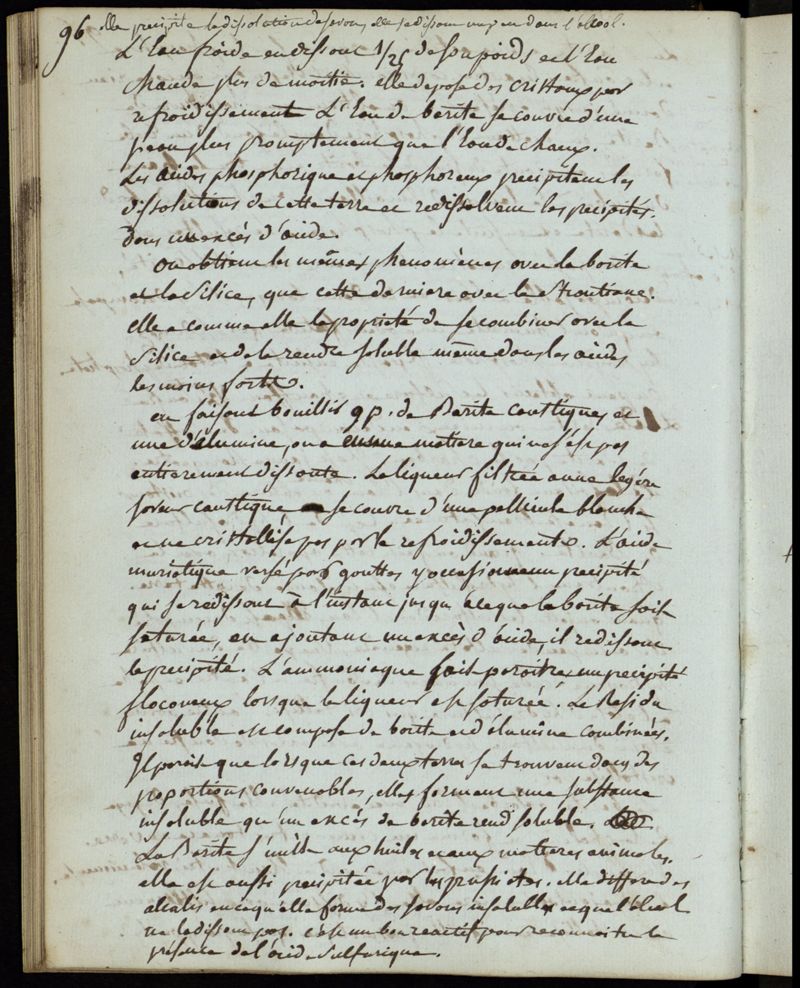 96 elle precipite la dissolution de savon, elle se dissout un peu dans l'alcool.
L'Eau froide en dissout 1/25 de son poids et l'Eau
chaude plus de moitié. elle depose des cristaux par
refroidissement L'Eau de barite se couvre d'une
peau plus promptement que l'Eau de chaux.
Les acides phosphorique et phosphoreux precipitent les
dissolutions de cette terre et redissolvent les precipités
dans un excès d'acide.
on obtient les mêmes phenomènes avec la barite
et la silice, que cette derniere avec la strontiane.
elle a comme elle la proprieté de se combiner avec la
silice et de la rendre soluble même dans les acides
les moins forts.
en faisant bouillir 9 p. de Barite caustique et
une d'alumine, on a une matiere qui ne s'est pas
entierement dissoute. La liqueur filtrée a une legère
saveur caustique se couvre d'une pellicule blanche
et ne cristallise pas par le refroidissement. L'acide
muriatique versé par gouttes y occasionne un precipité
qui se redissout à l'instant jusqu'à ce que la barite soit
saturée, en ajoutant un excès d'acide, il redissout
le precipité. L'ammoniaque fait paroitre un precipité
floconeux lorsque la liqueur est saturée. Le Residu
insoluble est composé de barite et d'alumine combinées.
Il paroit que lorsque ces deux terres se trouvent dans des
proportions convenables, elles forment une substance
insoluble qu'un excès de barite rend soluble.
La Barite s'unit aux huiles et aux matieres animales.
elle est aussi precipitée par les prussiates. elle differe des
alcalis en ce qu'elle forme des savons insolubles et que l'alcool
ne la dissout pas. c'est un bon reactif pour reconnoitre la
présence de l'acide sulfurique.